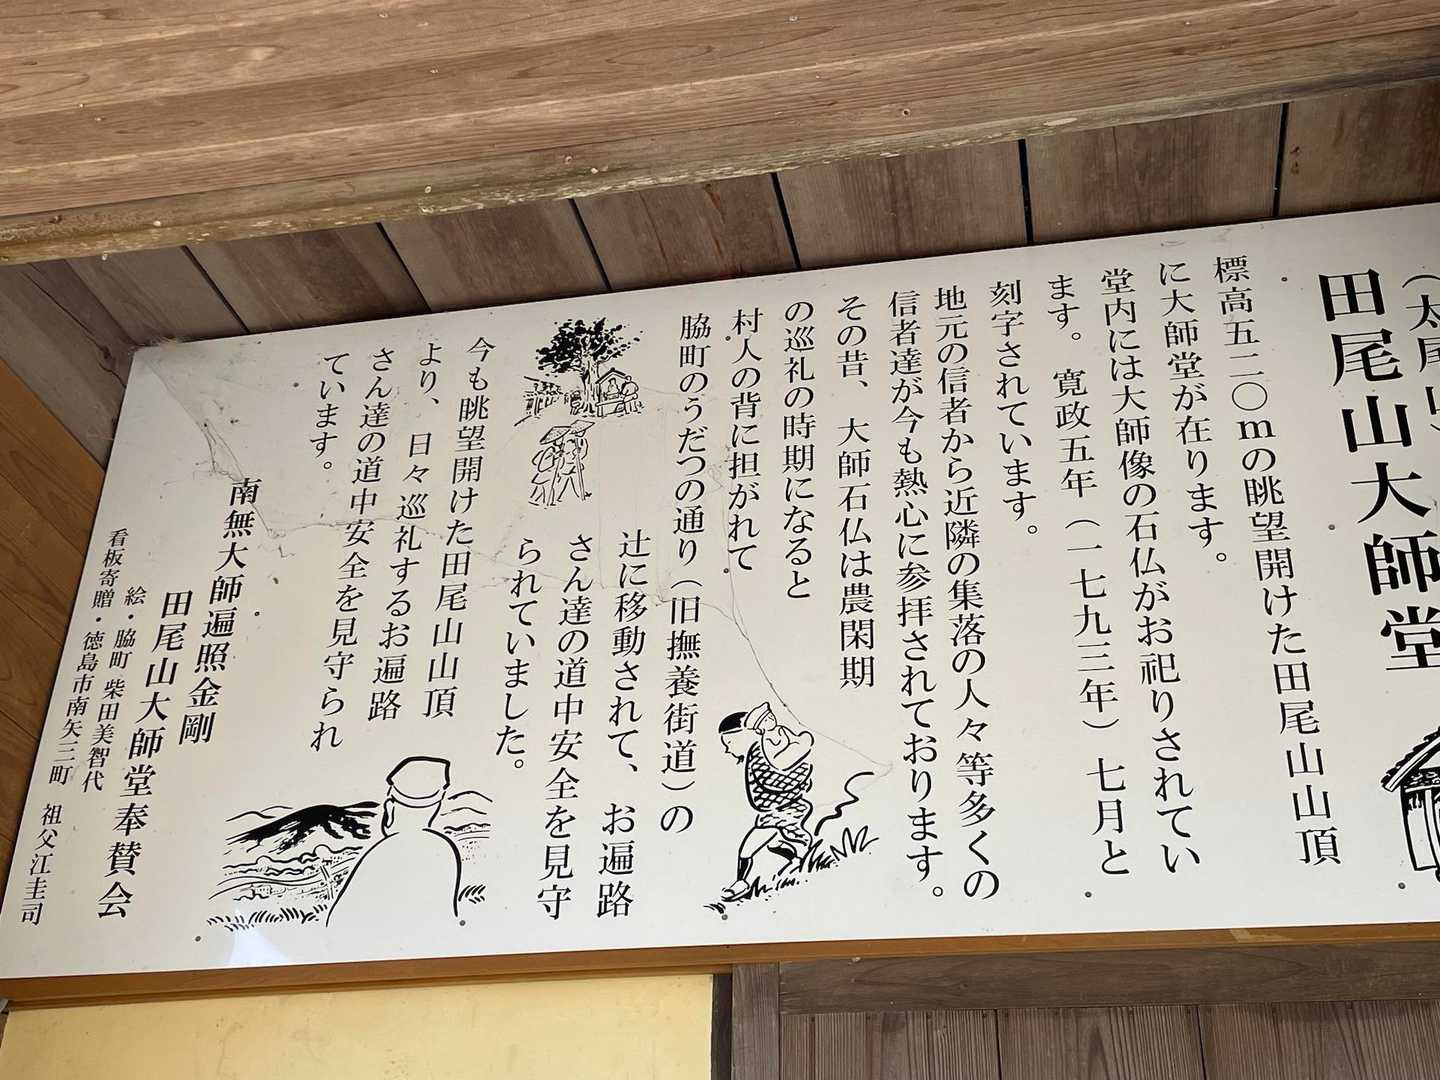 (太尾山)
田尾山大師堂
標高五二〇mの眺望開けた田尾山山頂
に大師堂が在ります。
堂内には大師像の石仏がお祀りされてい
ます。寛政五年（一七九三年）七月と
刻字されています。
地元の信者から近隣の集落の人々等多くの
信者達が今も熱心に参拝されております。
その昔、大師石仏は農閑期
の巡礼の時期になると
村人の背に担がれて
脇町のうだつの通り（旧撫養街道）の
辻に移動されて、お遍路
さん達の道中安全を見守
られていました。
今も眺望開けた田尾山山頂
より、日々巡礼するお遍路
さん達の道中安全を見守られ
ています。
南無大師遍照金剛
田尾山大師堂奉賛会
絵・脇町 柴田美智代
看板寄贈・徳島市南矢三町 祖父江圭司